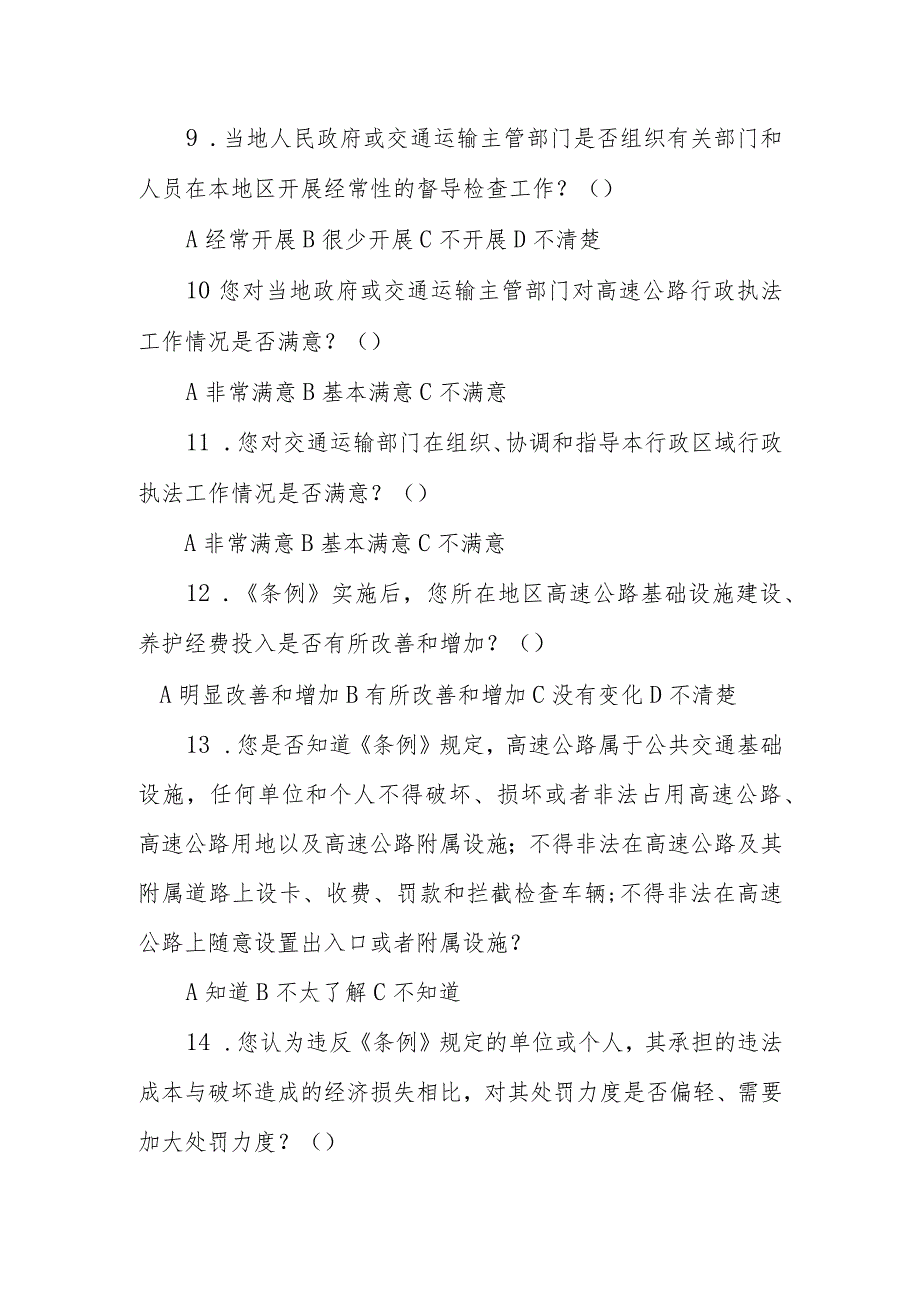 9 .当地人民政府或交通运输主管部门是否组织有关部门和
人员在本地区开展经常性的督导检查工作？（）
A 经常开展 B 很少开展 C 不开展 D 不清楚
10 您对当地政府或交通运输主管部门对高速公路行政执法
工作情况是否满意？（）
A 非常满意 B 基本满意 C 不满意
11 .您对交通运输部门在组织、协调和指导本行政区域行政
执法工作情况是否满意？（）
A 非常满意 B 基本满意 C 不满意
12 .《条例》实施后，您所在地区高速公路基础设施建设、
养护经费投入是否有所改善和增加？（）
A 明显改善和增加 B 有所改善和增加 C 没有变化 D 不清楚
13 .您是否知道《条例》规定，高速公路属于公共交通基础
设施，任何单位和个人不得破坏、损坏或者非法占用高速公路、
高速公路用地以及高速公路附属设施；不得非法在高速公路及其
附属道路上设卡、收费、罚款和拦截检查车辆;不得非法在高速
公路上随意设置出入口或者附属设施？
A 知道 B 不太了解 C 不知道
14 .您认为违反《条例》规定的单位或个人，其承担的违法
成本与破坏造成的经济损失相比，对其处罚力度是否偏轻、需要
加大处罚力度？（）